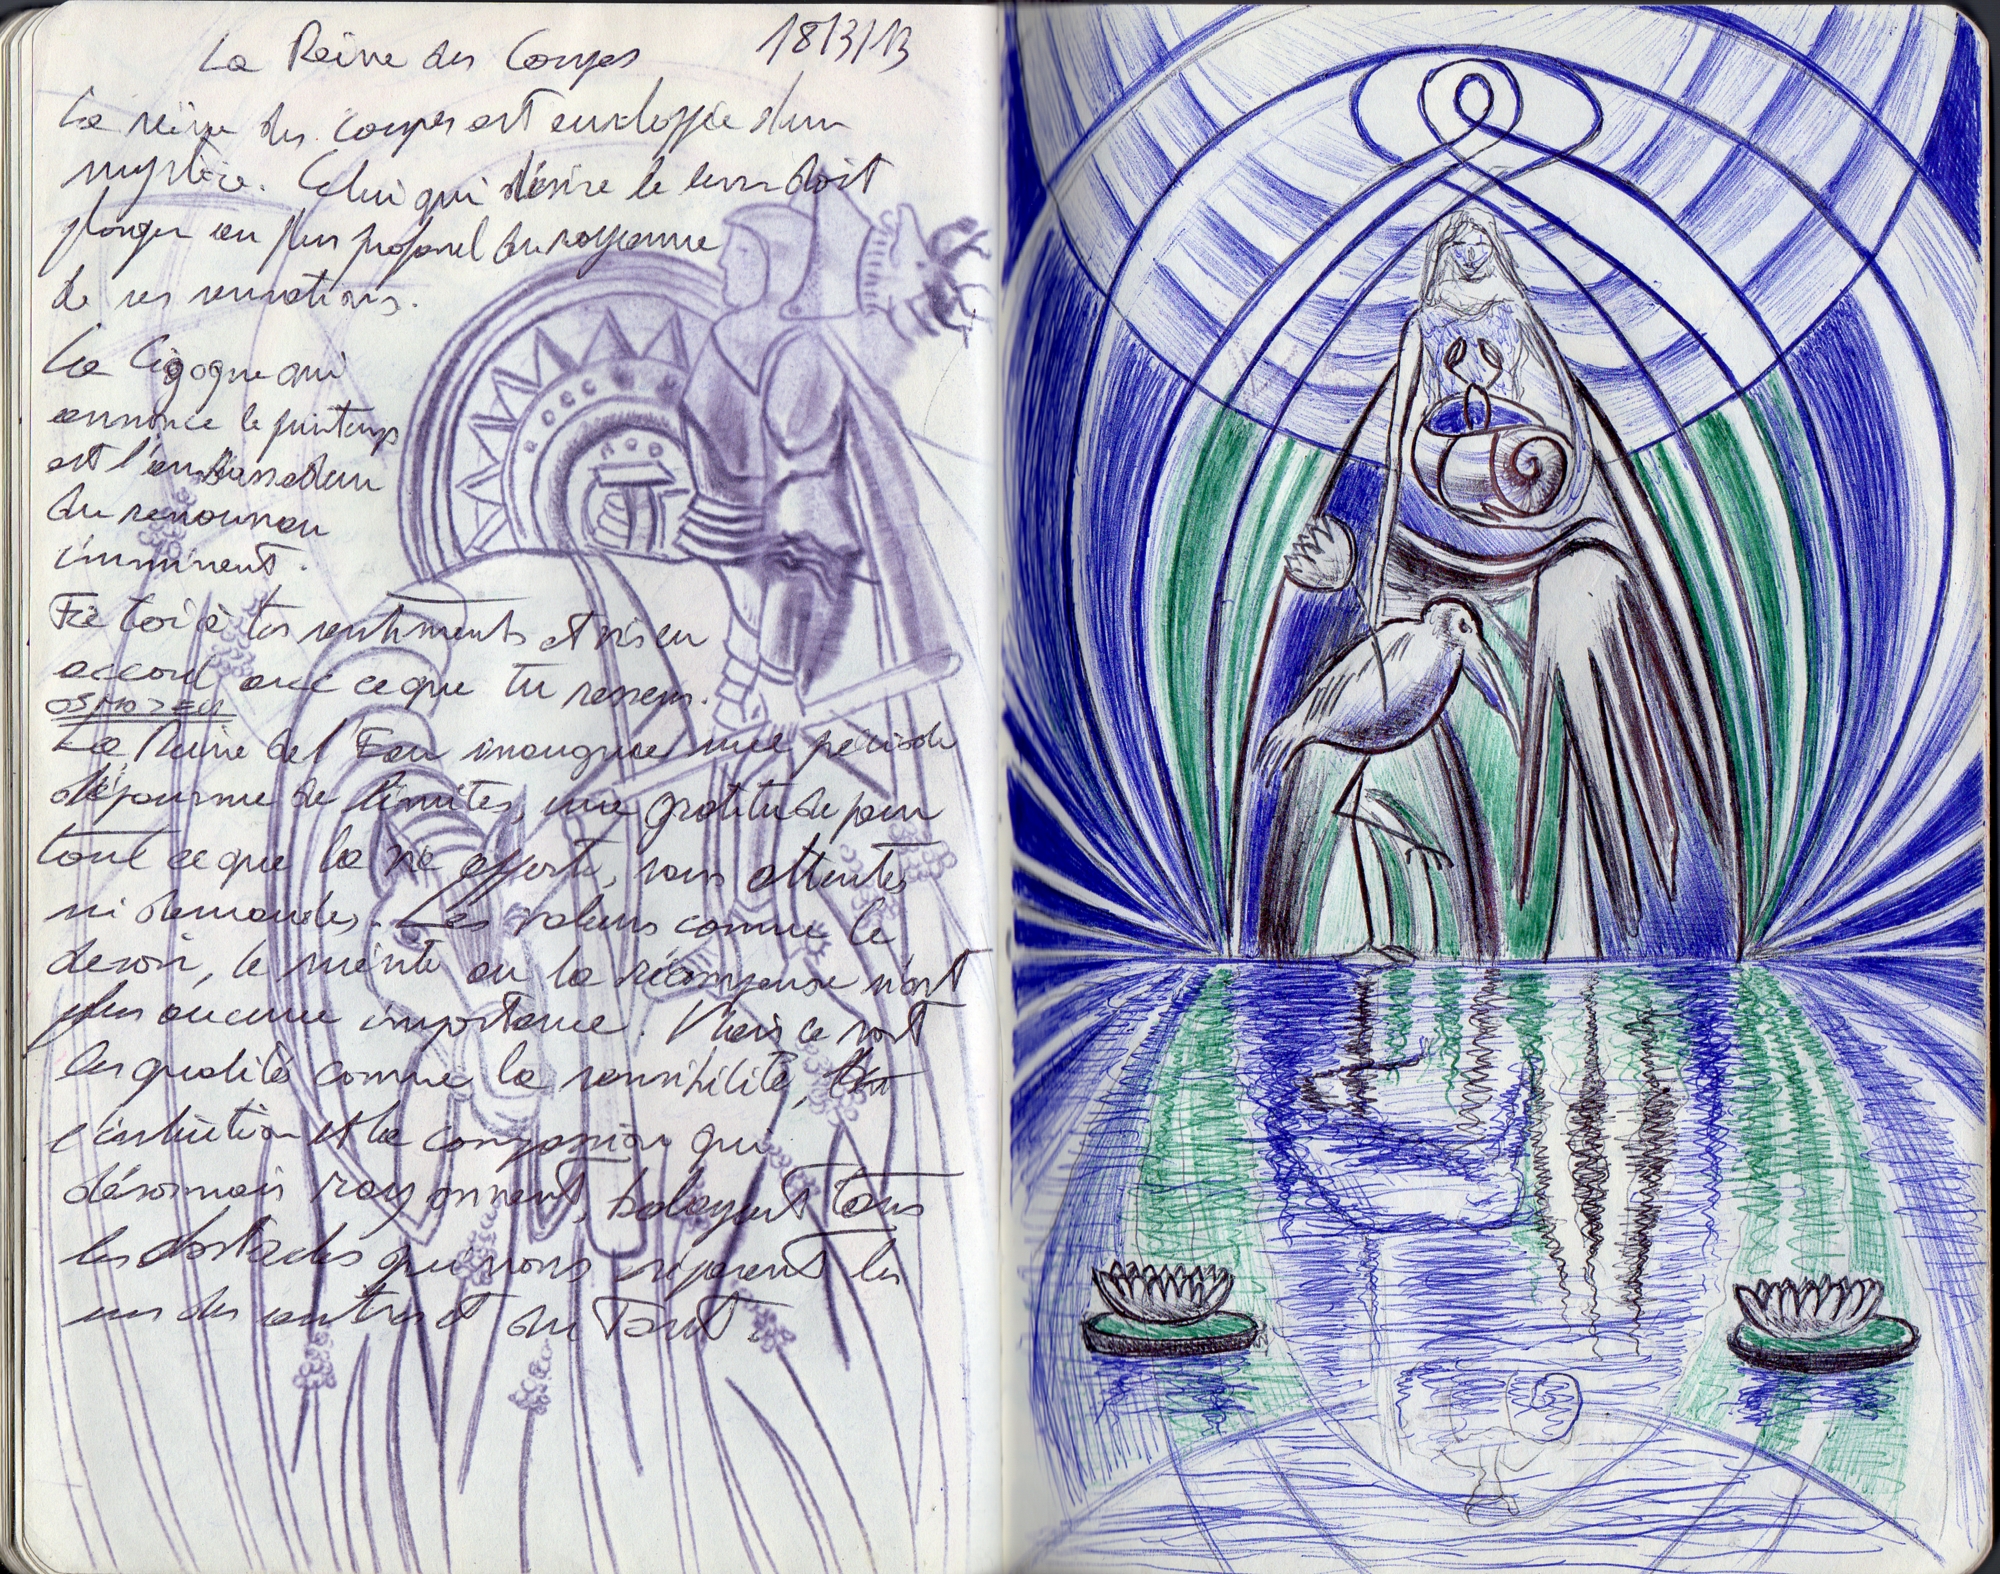 La Reine des Coupes 18/3/13
La reine des coupes est enveloppée d'un
mystère. Celui qui désire le lever doit
plonger au plus profond du royaume
de ses sensations.
La Cigogne qui
annonce le printemps
est l'ambassadeur
du renouveau
imminent.
Fie toi à tes sentiments et vis en
accord avec ce que tu ressens.
OSHO ZEN
La Reine de l'Eau inaugure une période
dépourvue de limites, une gratitude pour
tout ce que la vie apporte, sans attentes
ni demandes. Les valeurs comme le
devoir, le mérite ou la récompense n'ont
plus aucune importance. Mais ce sont
les qualités comme la sensibilité,
l'intuition et la compassion qui
désormais rayonnent, balayant tous
les obstacles qui nous séparent les
uns des autres et du Tout.